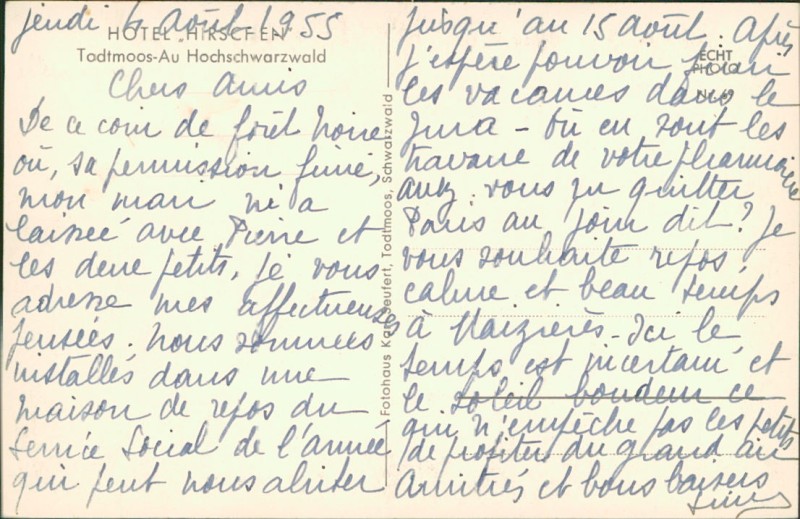 jeudi 4 Août 1955
HOTEL "HIRSCHEN"
Todtmoos-Au Hochschwarzwald
Chers Amis
De ce coin de forêt Noire
où, sa permission finie,
mon mari m'a
laissée avec Pierre et
les deux petits, je vous
adresse mes affectueuses
pensées. Nous sommes
installés dans une
maison de repos du
Service Social de l'armée
qui peut nous abriter
Fotohaus Karl Seufert, Todtmoos, Schwarzwald
ECHT
PHOTO
jusqu'au 15 août. Après
j'espère pouvoir finir
les vacances dans le
Jura - Où en sont les
travaux de votre pharmacie
avez vous pu quitter
Paris au jour dit? Je
vous souhaite repos,
calme et beau temps
à Maizières. Ici le
temps est incertain et
le soleil boudeur ce
qui n'empêche pas les petits
de profiter du grand air
Amitiés et bons baisers